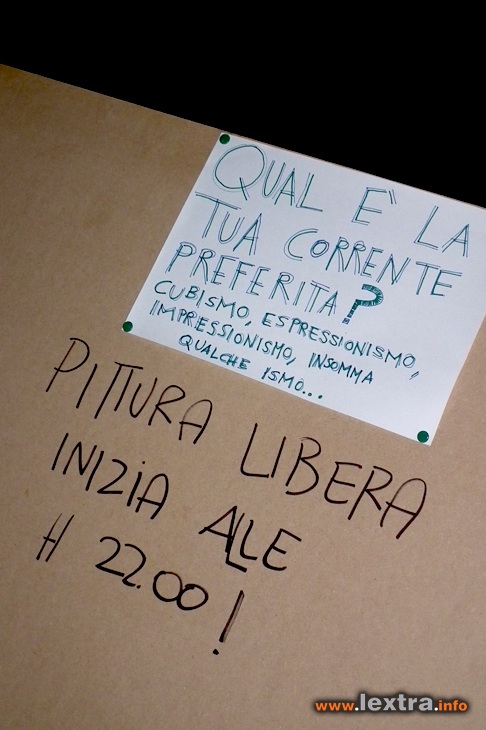 QUAL E' LA
TUA CORRENTE
PREFERITA?
CUBISMO, ESPRESSIONISMO,
IMPRESSIONISMO, INSOMMA
QUALCHE ISMO...
PITTURA LIBERA
INIZIA ALLE
H 22.00!
www.lextra.info